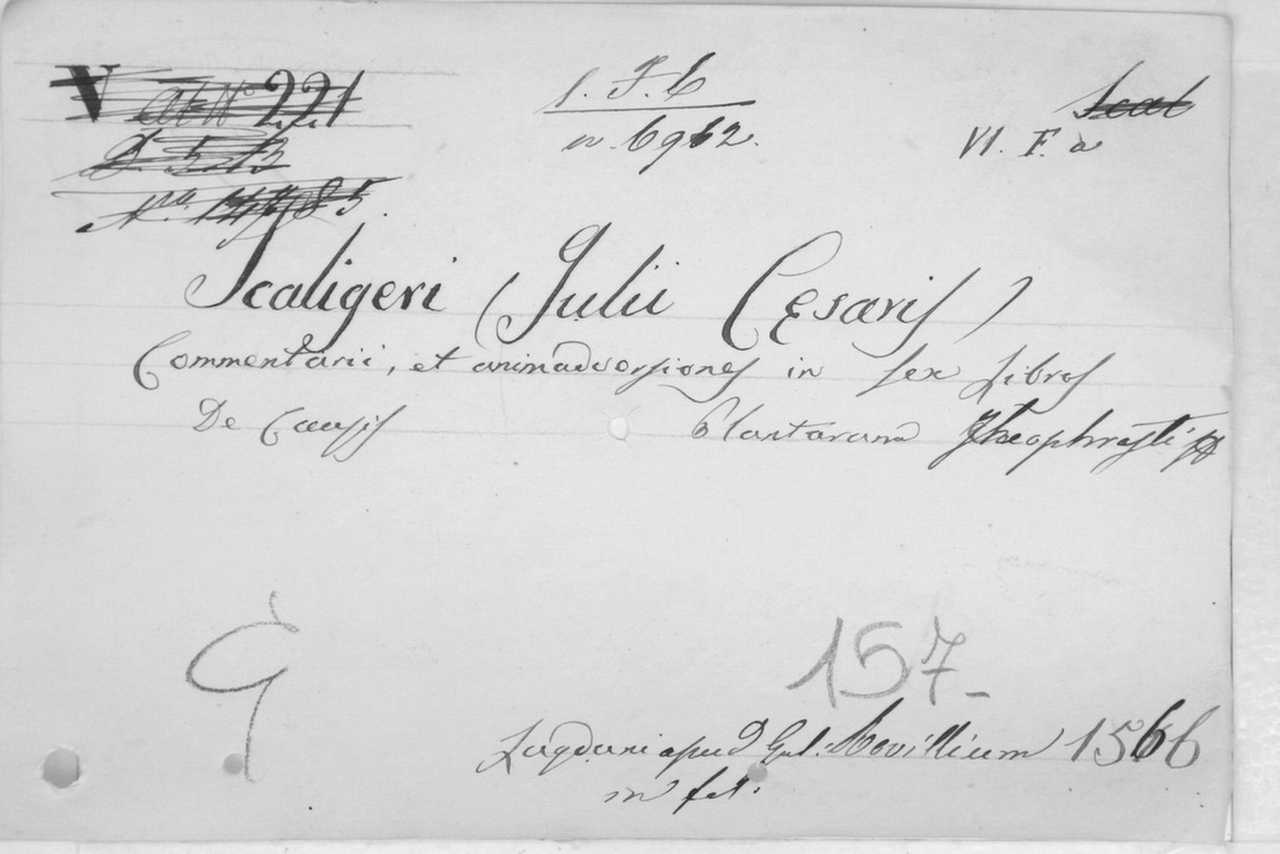 V 221
I. F. b
n. 6962.
VI. F. a
Scaligeri (Julii Cęsaris)
Commentarii, et animadversiones in sex Libros
De Causis Plantarum Theophrasti
G
157-
Lugduni apud Gul: Rovillium 1566
in fol.